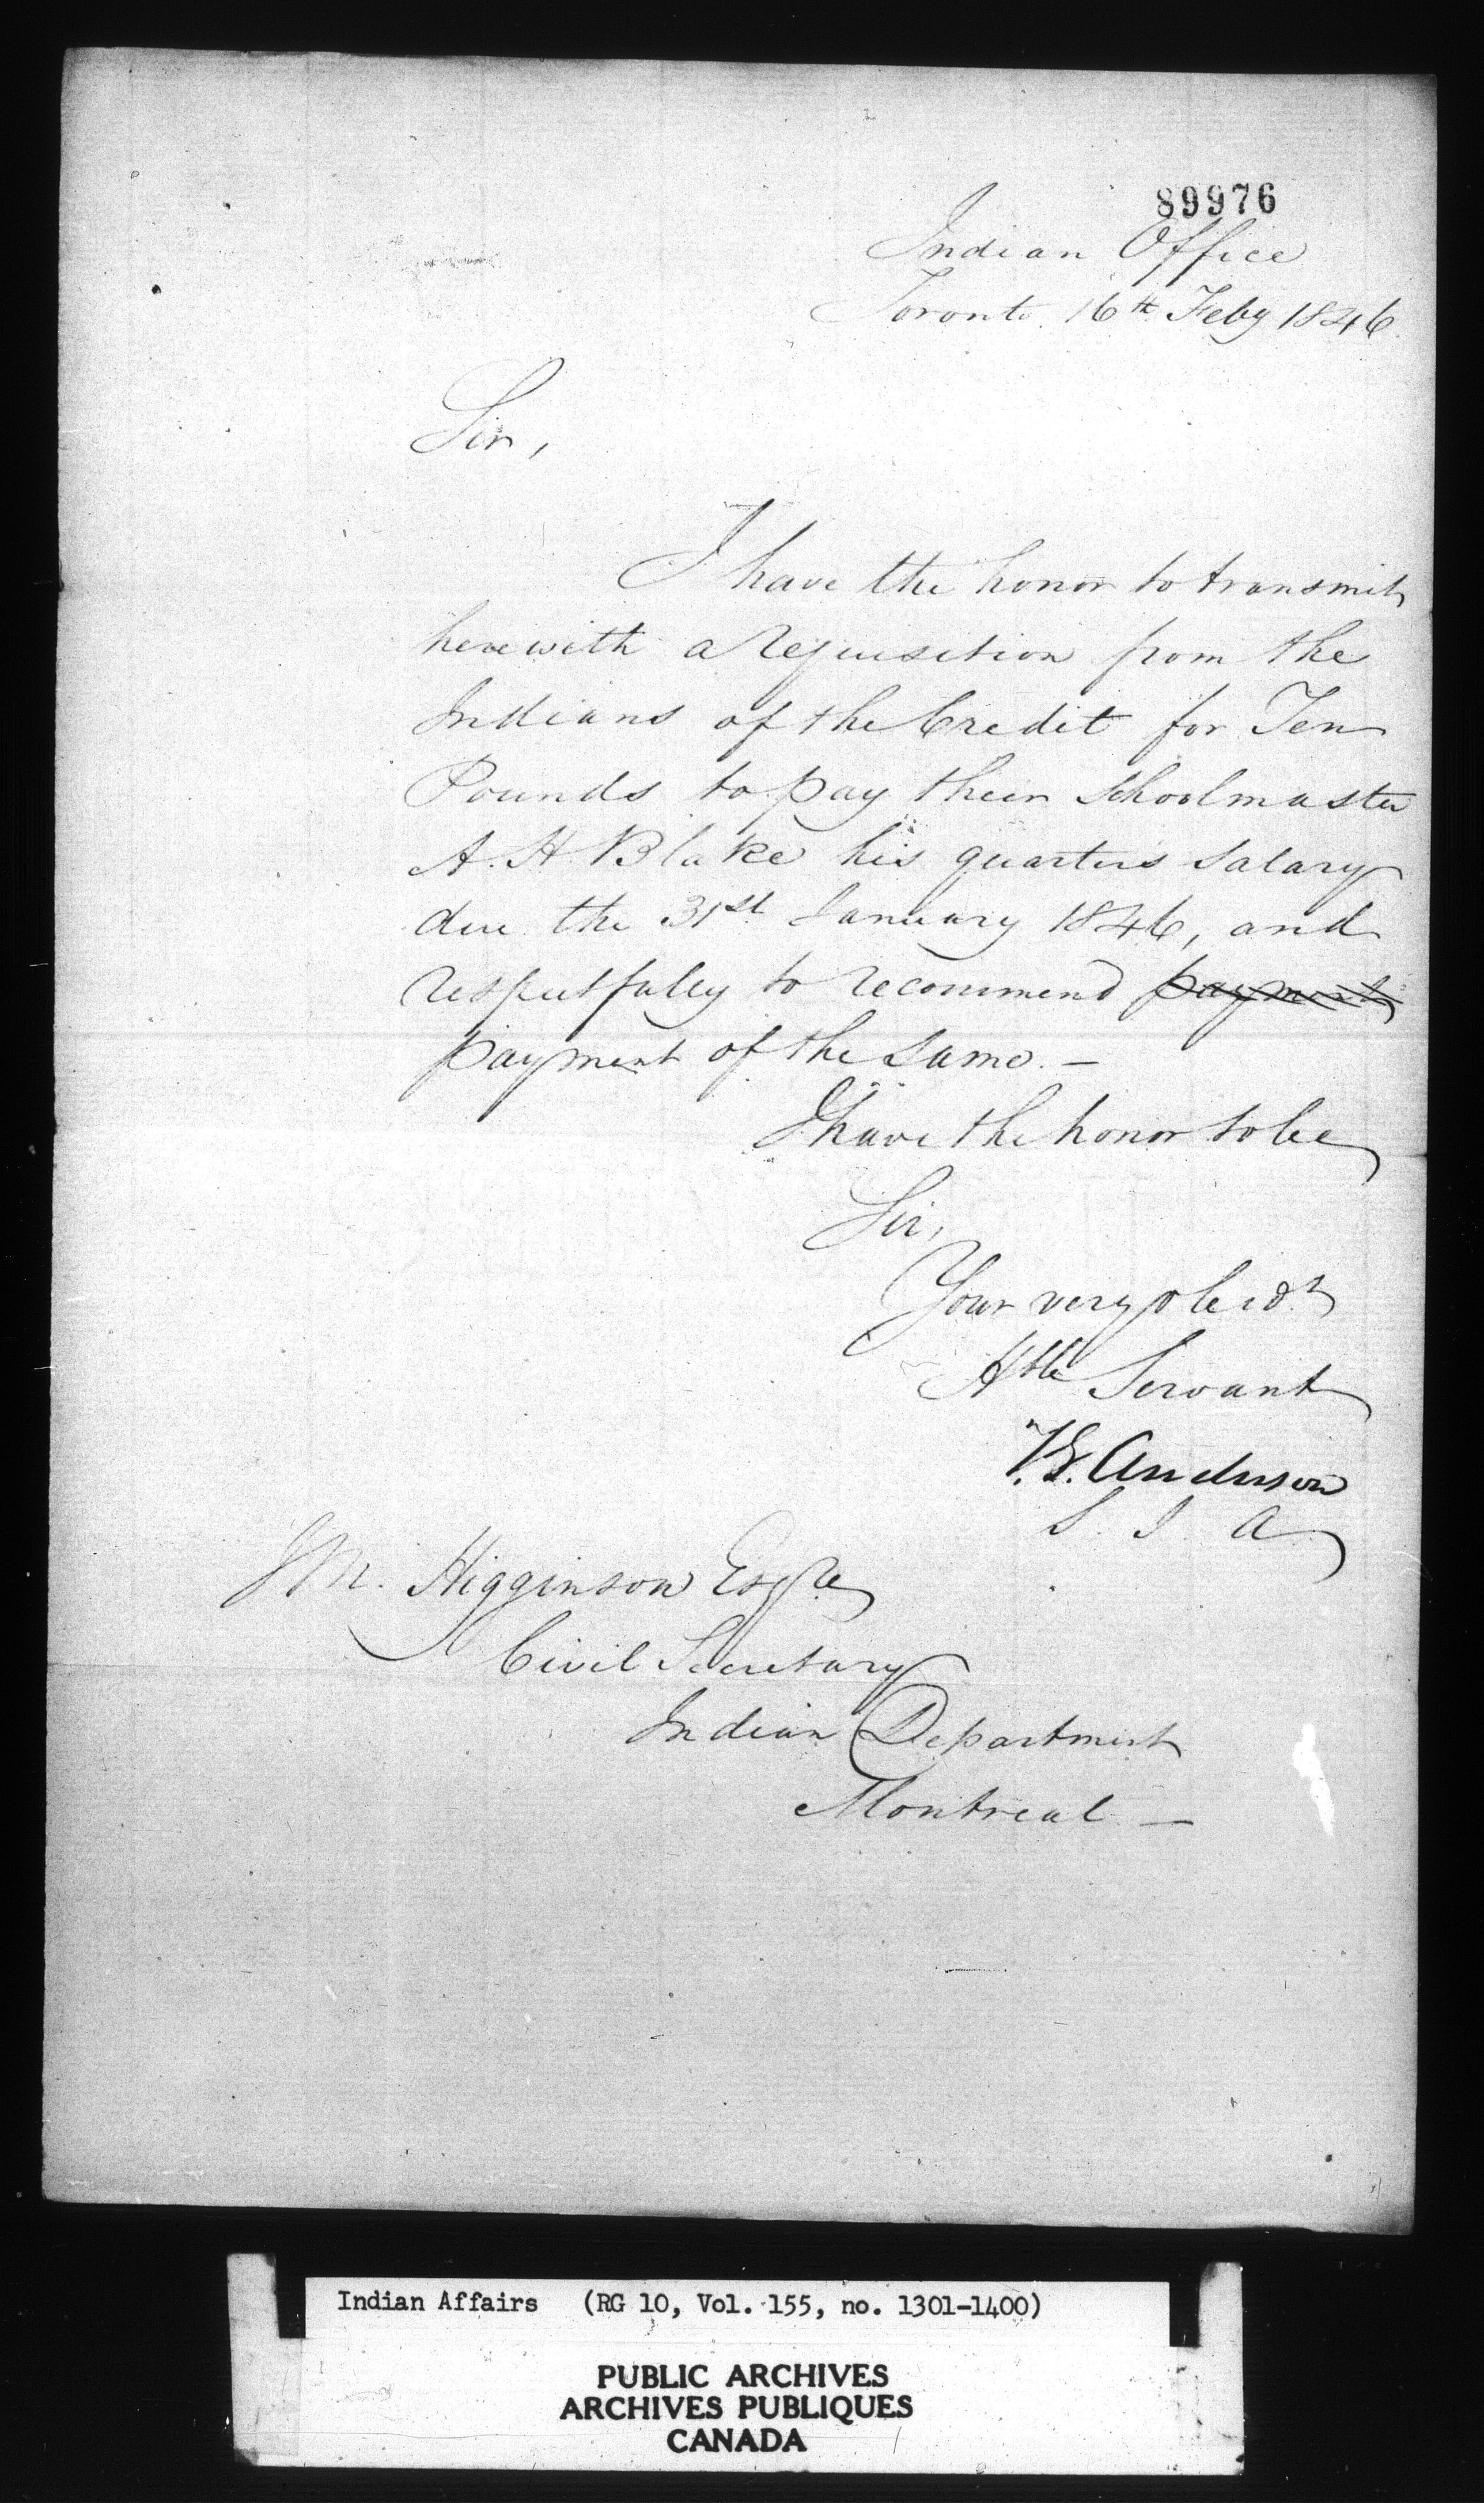 89976
Indian Office
Toronto 16th Feby 1846.
Sir,
I have the honor to transmit
herewith a requisition from the
Indians of the Credit for Ten
Pounds to pay their Schoolmaster
A. H. Blake his quarters Salary
due the 31st January 1846, and
respectfully to recommend payment
payment of the Same. —
I have the honor to be
Sir,
Your very obed.t
Hble Servant
Anderson
S. I. A
J M. Higginson Esqre
Civil Secretary
Indian Department
Montreal —
Indian Affairs (RG 10, Vol. 155, no. 1301-1400)
PUBLIC ARCHIVES
ARCHIVES PUBLIQUES
CANADA